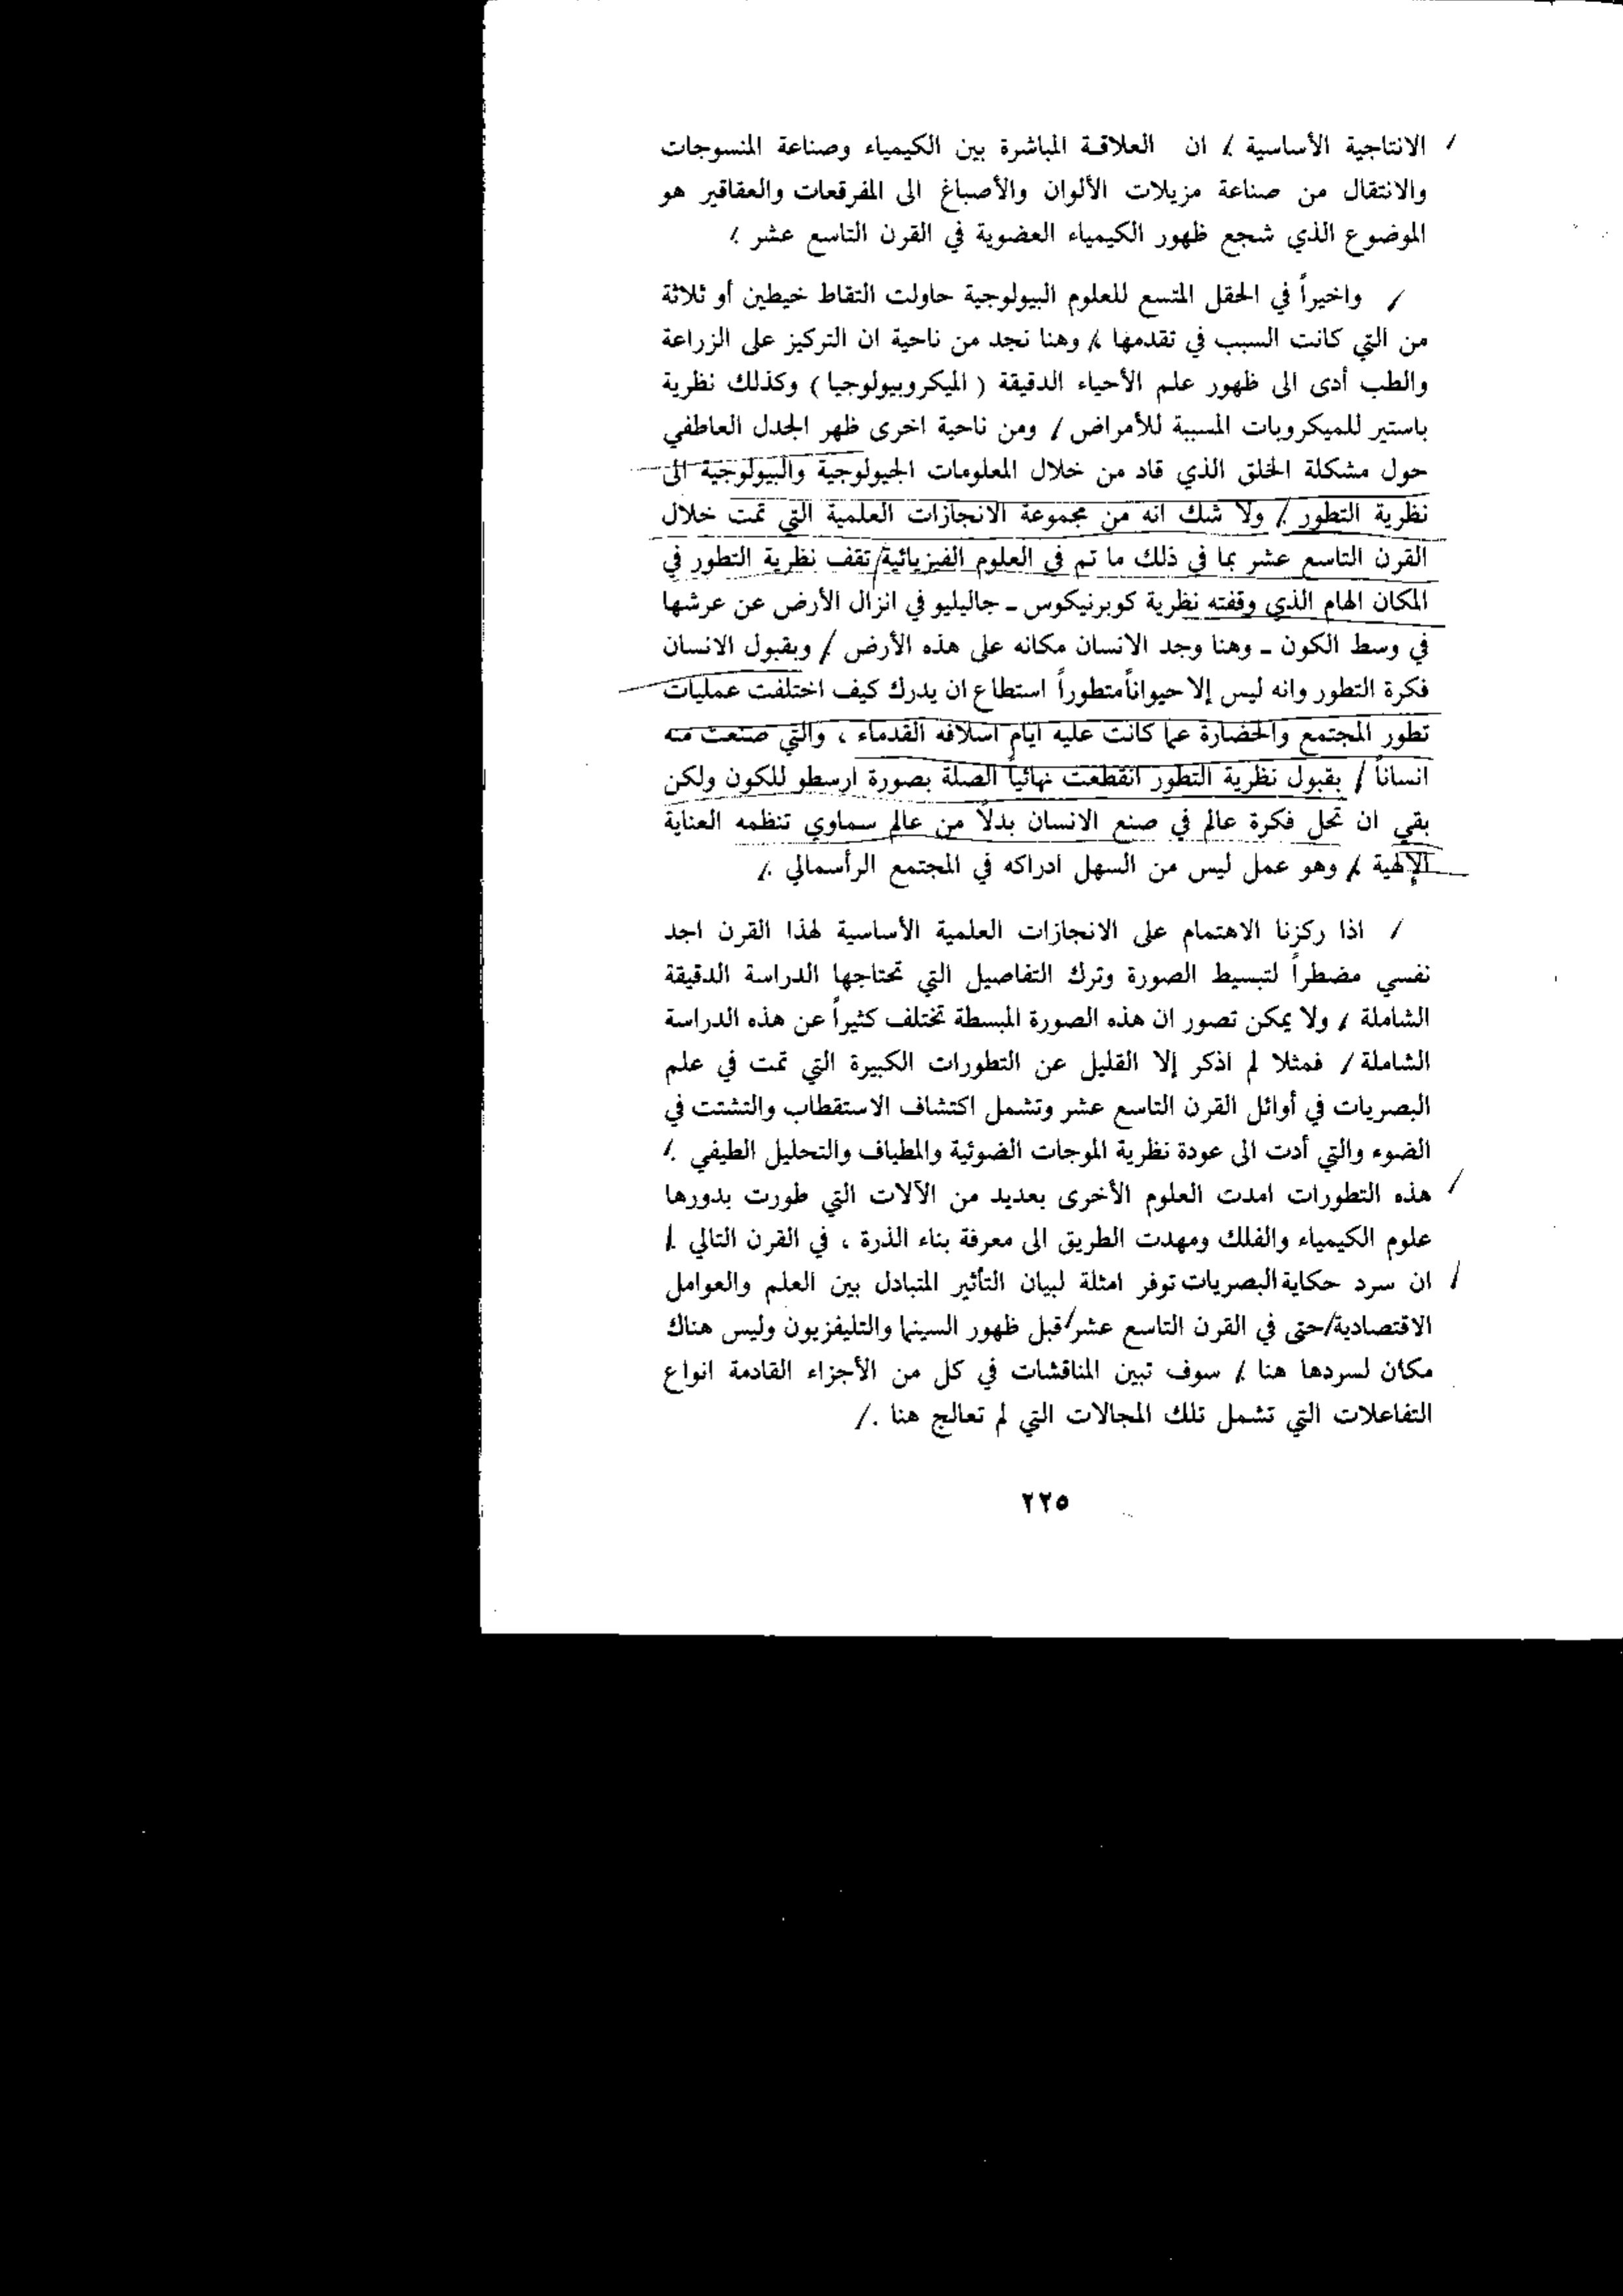 الانتاجية الأساسية . ان العلاقة المباشرة بين الكيمياء وصناعة المنسوجات
والانتقال من صناعة مزيلات الألوان والأصباغ الى المفرقعات والعقاقير هو
الموضوع الذي شجع ظهور الكيمياء العضوية في القرن التاسع عشر .
واخيراً في الحقل المتسع للعلوم البيولوجية حاولت التقاط خيطين أو ثلاثة
من التي كانت السبب في تقدمها . وهنا نجد من ناحية ان التركيز على الزراعة
والطب أدى الى ظهور علم الأحياء الدقيقة ( الميكروبيولوجيا ) وكذلك نظرية
باستير للميكروبات المسببة للأمراض . ومن ناحية اخرى ظهر الجدل العاطفي
حول مشكلة الخلق الذي قاد من خلال المعلومات الجيولوجية والبيولوجية الى
نظرية التطور . ولا شك انه من مجموعة الانجازات العلمية التي تمت خلال
القرن التاسع عشر بما في ذلك ما تم في العلوم الفيزيائية تقف نظرية التطور في
المكان الهام الذي وقفته نظرية كوبرنيكوس ـ جاليليو في انزال الأرض عن عرشها
في وسط الكون ـ وهنا وجد الانسان مكانه على هذه الأرض . وبقبول الانسان
فكرة التطور وانه ليس إلا حيواناً متطوراً استطاع ان يدرك كيف اختلفت عمليات
تطور المجتمع والحضارة عما كانت عليه ايام اسلافه القدماء ، والتي صنعت منه
انساناً . بقبول نظرية التطور انقطعت نهائياً الصلة بصورة ارسطو للكون ولكن
بقي ان تحل فكرة عالم في صنع الانسان بدلاً من عالم سماوي تنظمه العناية
الإلهية . وهو عمل ليس من السهل ادراكه في المجتمع الرأسمالي .
اذا ركزنا الاهتمام على الانجازات العلمية الأساسية لهذا القرن اجد
نفسي مضطراً لتبسيط الصورة وترك التفاصيل التي تحتاجها الدراسة الدقيقة
الشاملة . ولا يمكن تصور ان هذه الصورة المبسطة تختلف كثيراً عن هذه الدراسة
الشاملة . فمثلا لم اذكر إلا القليل عن التطورات الكبيرة التي تمت في علم
البصريات في أوائل القرن التاسع عشر وتشمل اكتشاف الاستقطاب والتشتت في
الضوء والتي أدت الى عودة نظرية الموجات الضوئية والمطياف والتحليل الطيفي .
هذه التطورات امدت العلوم الأخرى بعديد من الآلات التي طورت بدورها
علوم الكيمياء والفلك ومهدت الطريق الى معرفة بناء الذرة ، في القرن التالي .
ان سرد حكاية البصريات توفر امثلة لبيان التأثير المتبادل بين العلم والعوامل
الاقتصادية حتى في القرن التاسع عشر قبل ظهور السينما والتليفزيون وليس هناك
مكان لسردها هنا . سوف تبين المناقشات في كل من الأجزاء القادمة انواع
التفاعلات التي تشمل تلك المجالات التي لم تعالج هنا .
٢٢٥